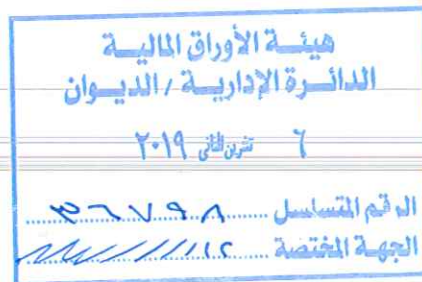 هيئة الأوراق المالية
الدائرة الإدارية / الديوان
٦ تشرين الثاني ٢٠١٩
الرقم المتسلسل ٣٦٧٩٨
الجهة المختصة